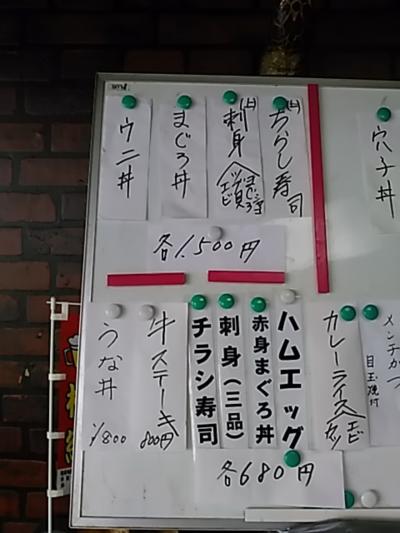 穴子丼
㊤ちらし寿司
㊤刺身
まぐろ丼
ウニ丼
各1,500円
メンチかつ
目玉焼付
カレーライス
ハムエッグ
赤身まぐろ丼
刺身(三品)
チラシ寿司
各680円
牛ステーキ
800円
うな丼
¥1800